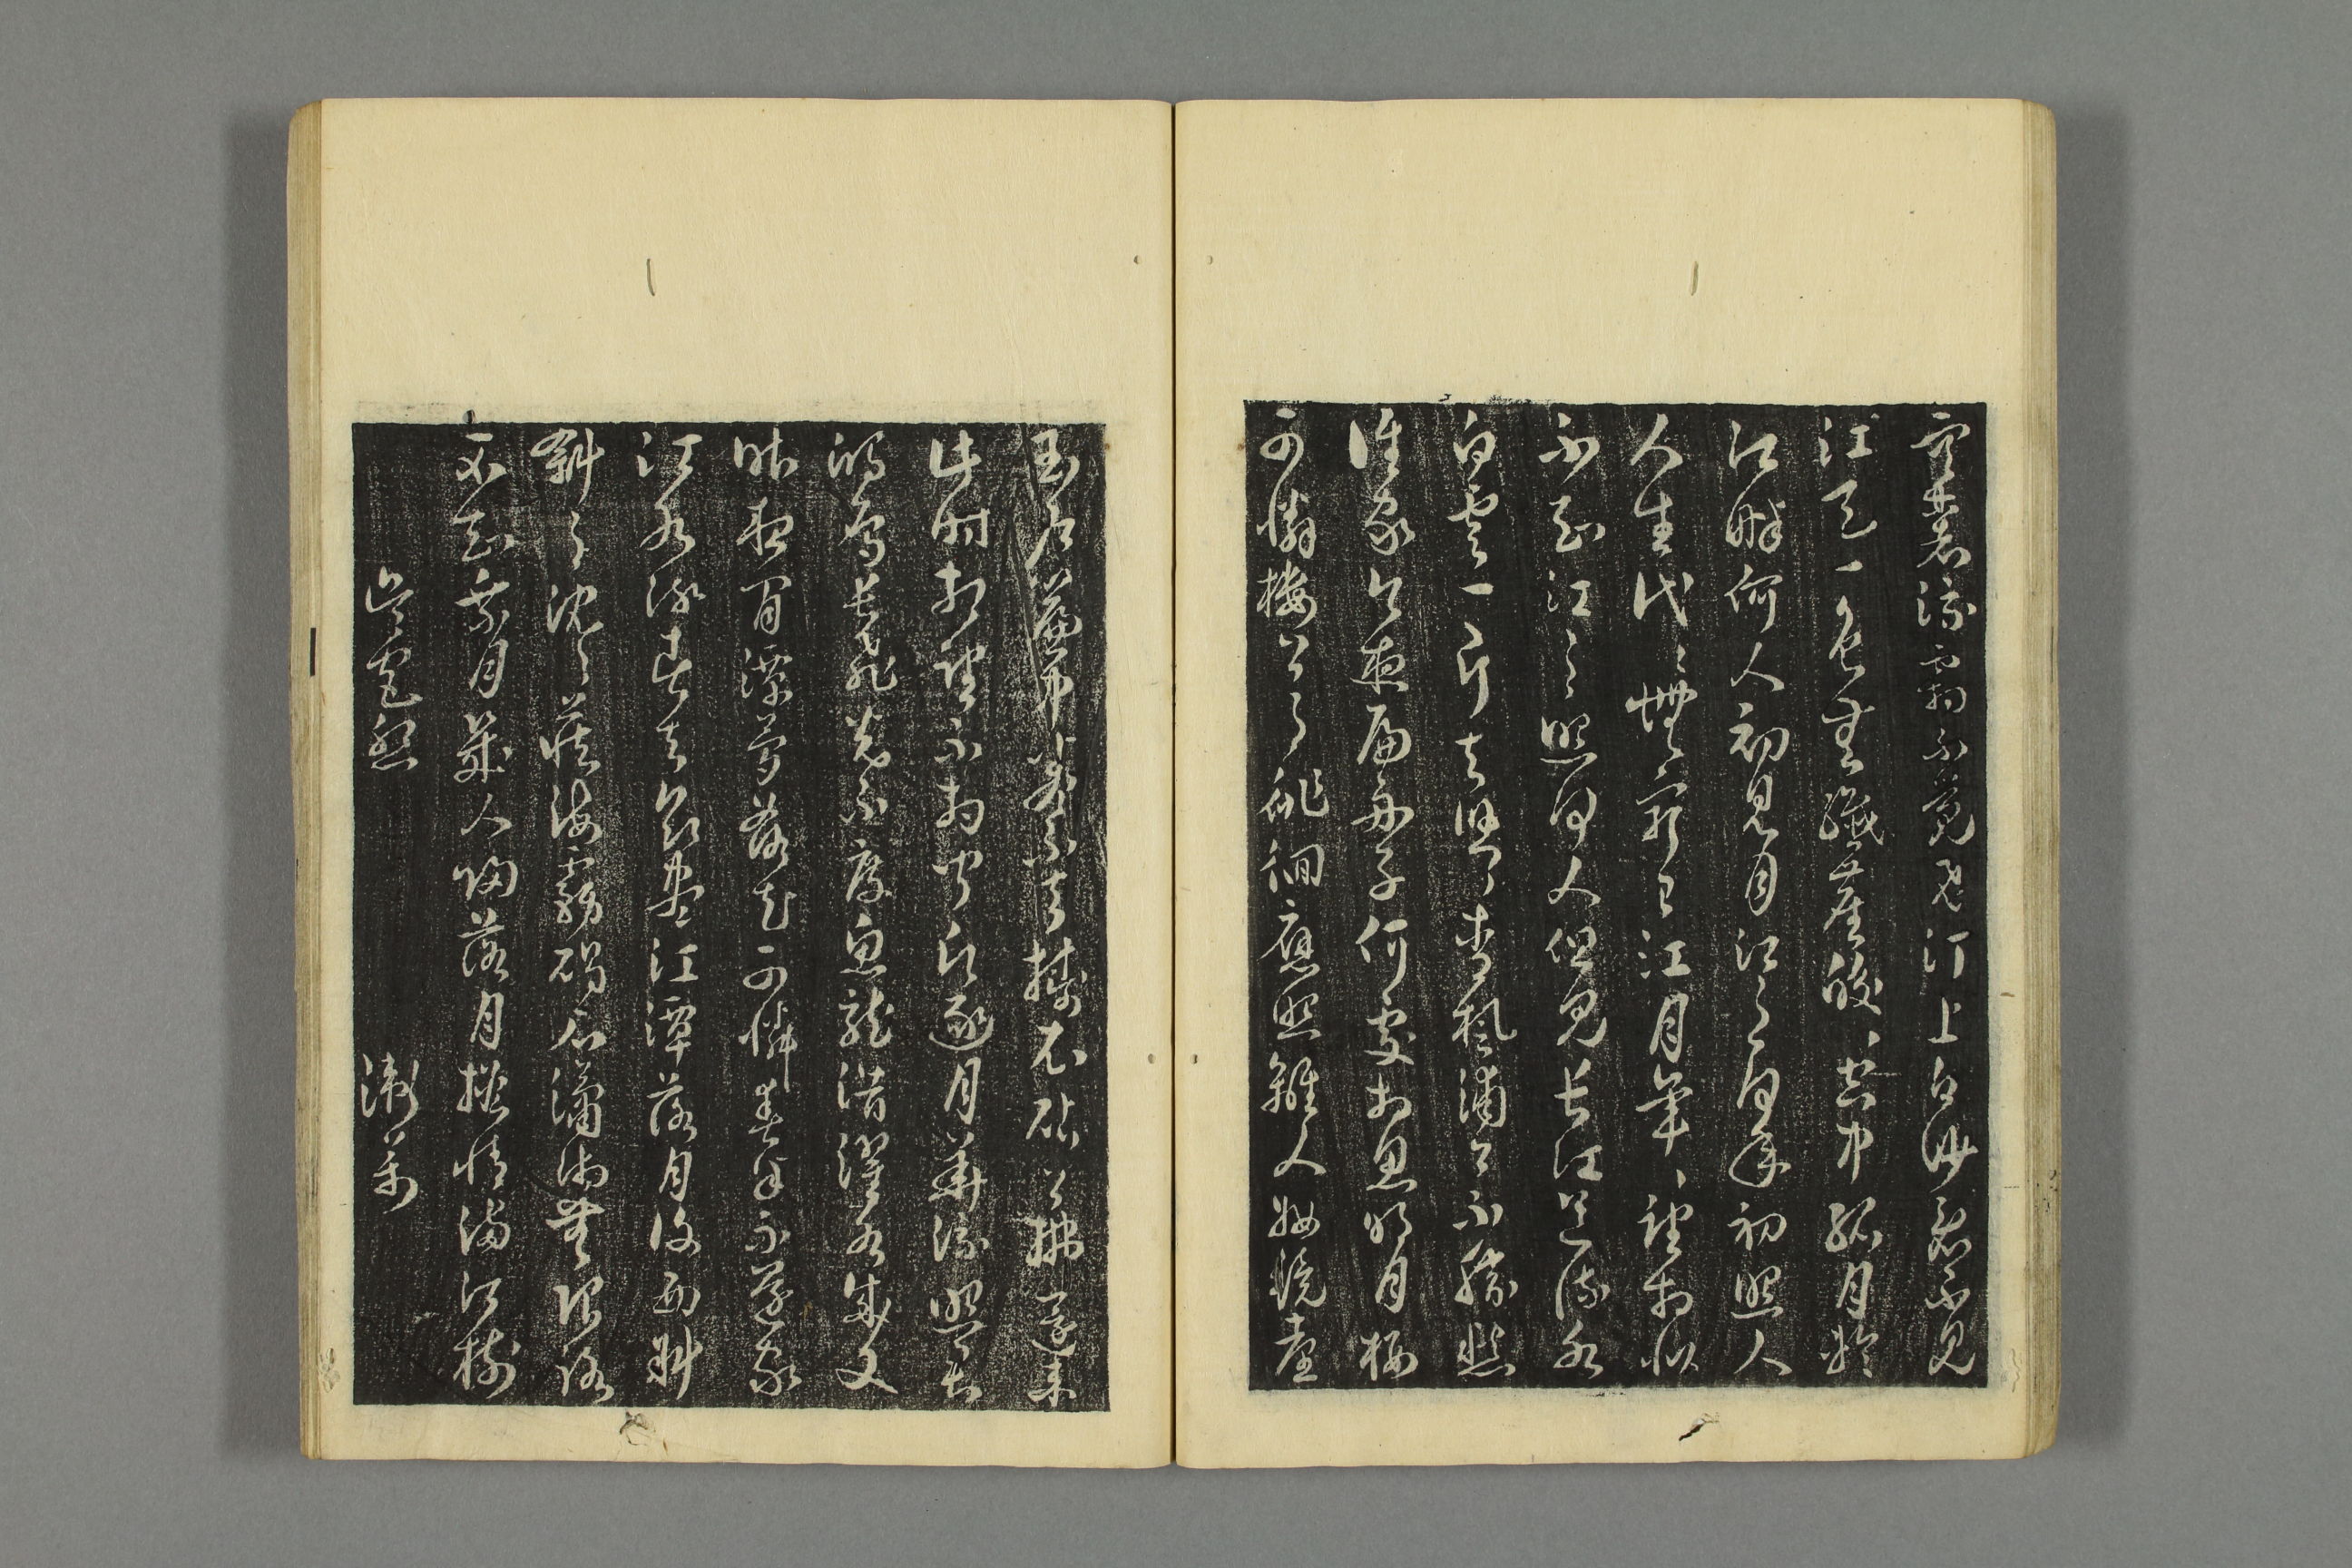 空裏流霜不覺飛汀上白沙看不見
江天一色無纖塵皎〻空中孤月輪
江畔何人初見月江月何年初照人
人生代〻無窮已江月年〻望相似
不知江月照何人但見長江送流水
白雲一片去悠〻青楓浦上不勝愁
誰家今夜扁舟子何處相思明月樓
可憐樓上月徘徊應照離人妝鏡臺
玉戶簾中卷不去擣衣砧上拂還來
此時相望不相聞願逐月華流照君
鴻鴈長飛光不度魚龍潛躍水成文
昨夜閒潭夢落花可憐春半不還家
江水流春去欲盡江潭落月復西斜
斜月沈〻藏海霧碣石瀟湘無限路
不知乘月幾人歸落月搖情滿江樹